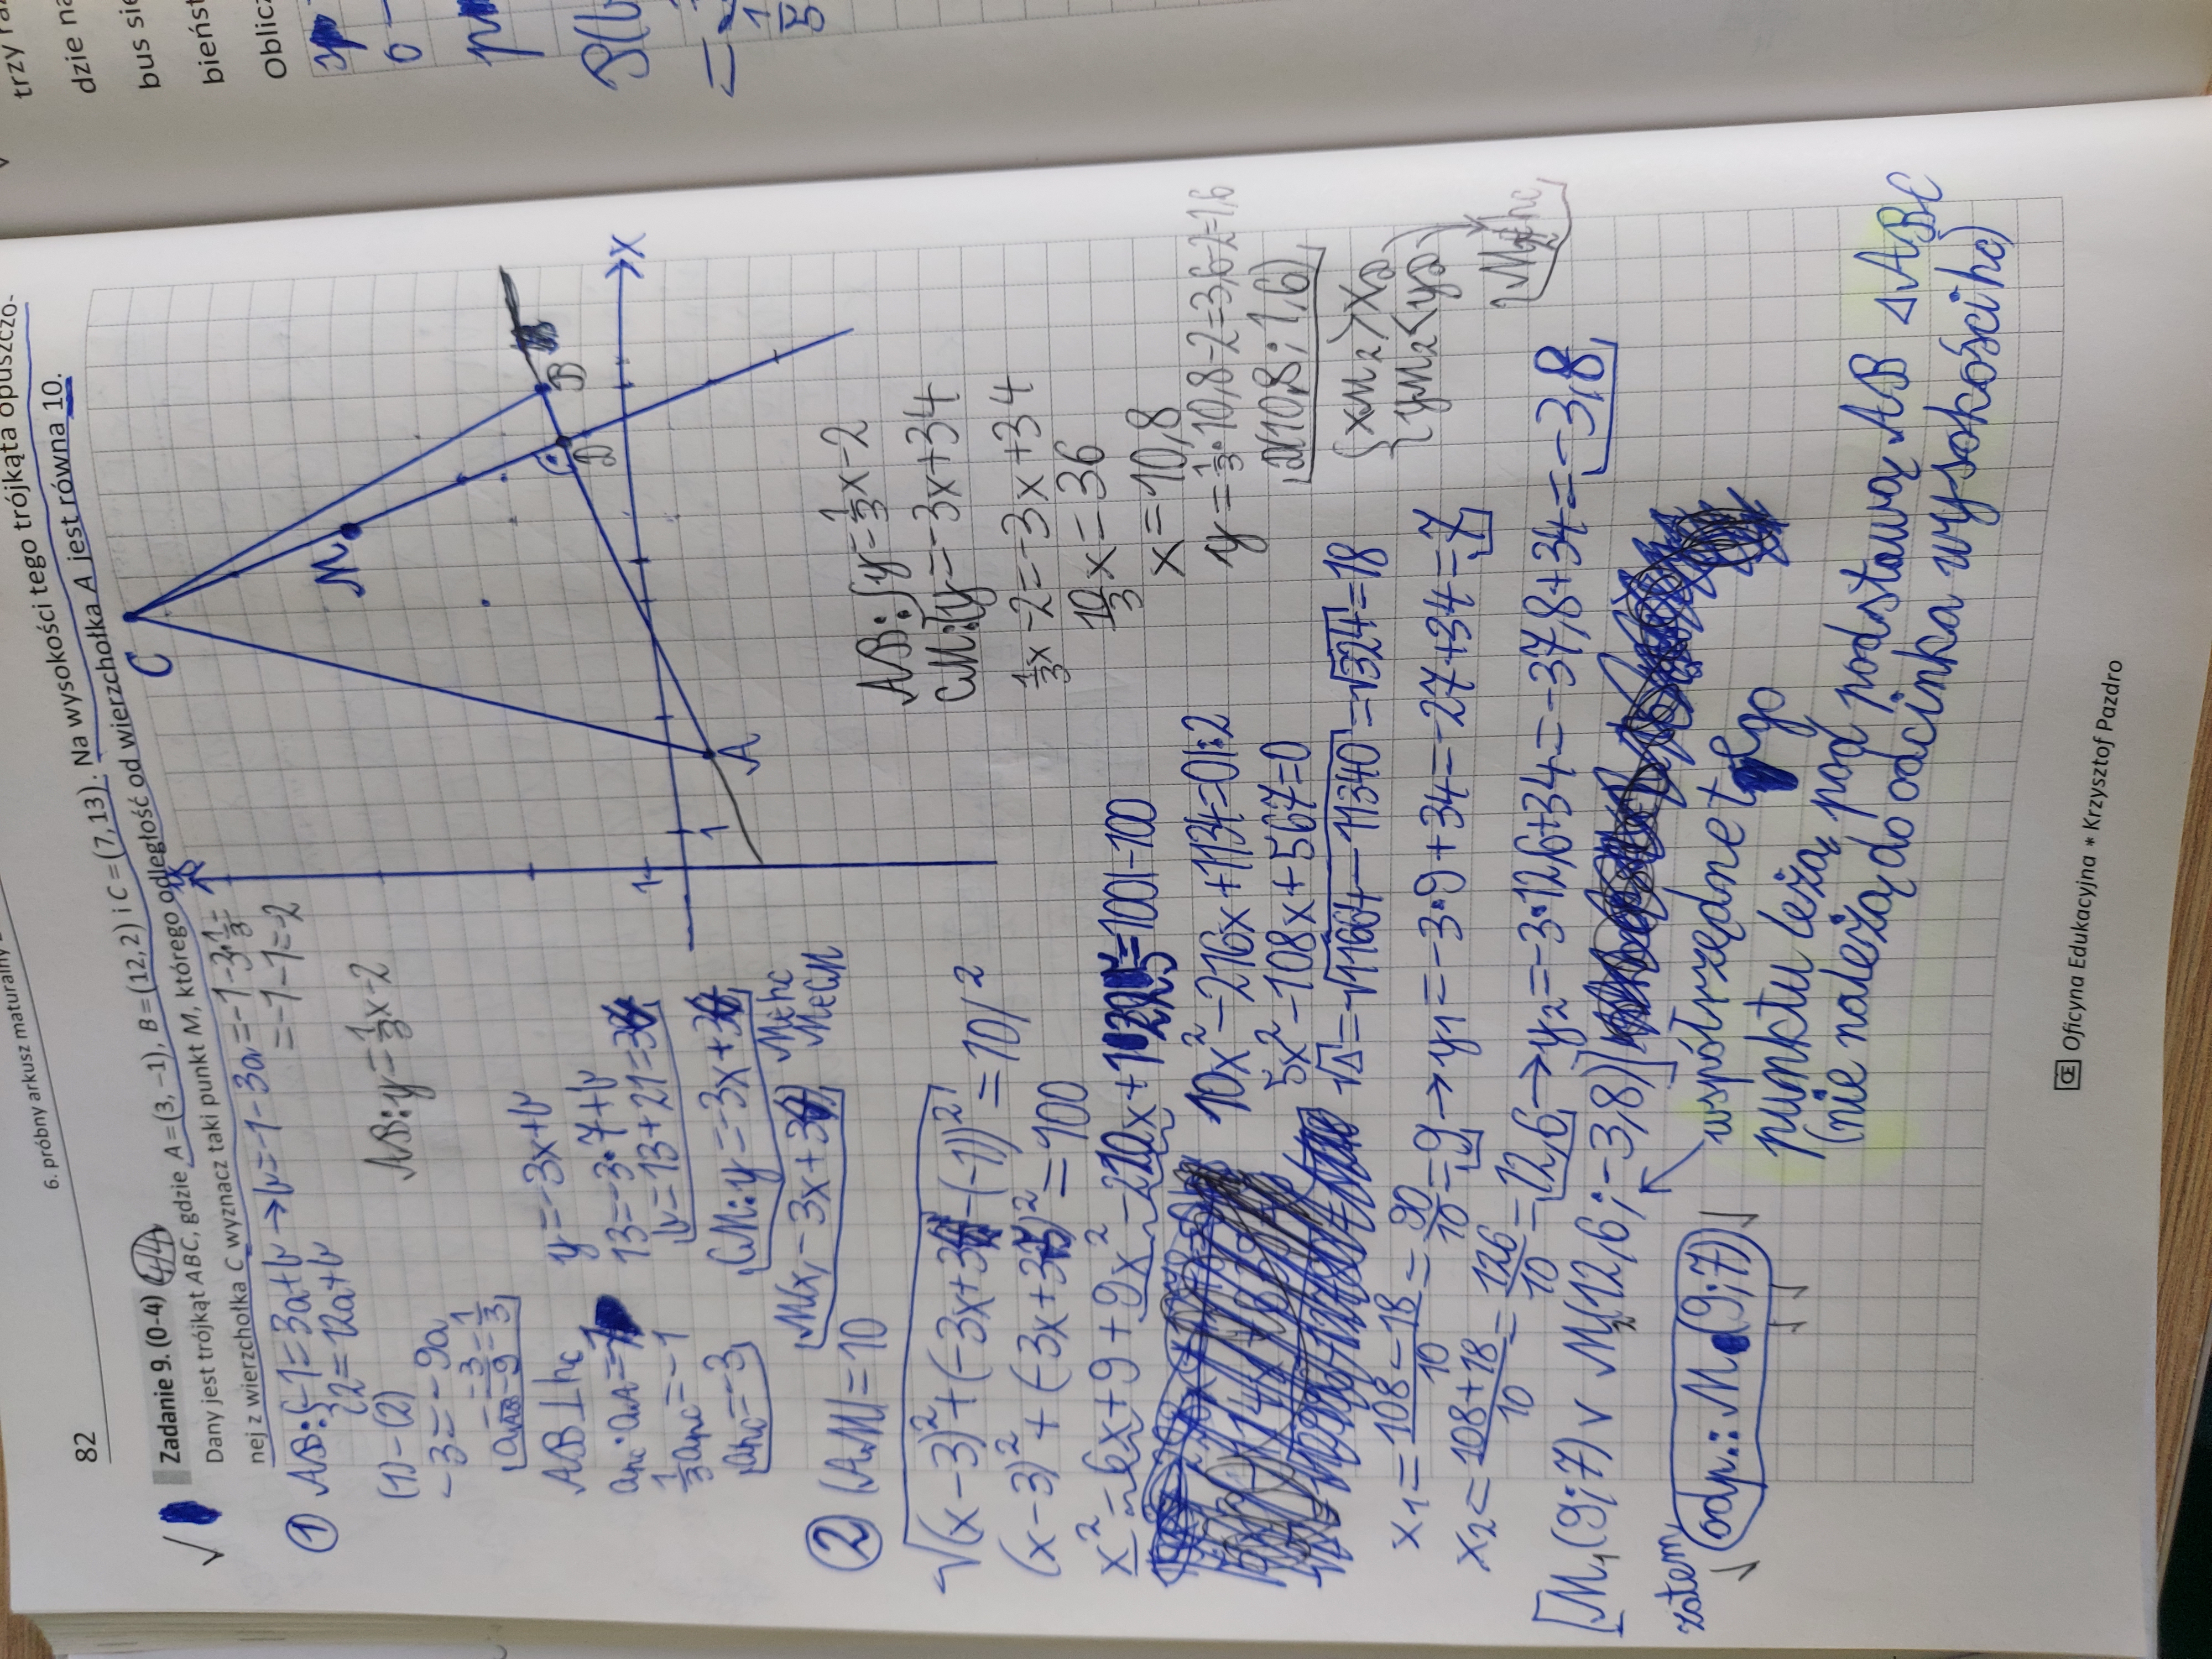 82
6. próbny arkusz maturalny
Zadanie 9. (0-4) 4/4
Dany jest trójkąt ABC, gdzie A = (3, −1), B = (12, 2) i C = (7, 13). Na wysokości tego trójkąta opuszczo-
nej z wierzchołka C wyznacz taki punkt M, którego odległość od wierzchołka A jest równa 10.
① AB: { -1 = 3a+b → b = -1-3a = -1-3·1/3 =
2 = 12a+b
= -1-1 = -2
(1)-(2)
-3 = -9a
AB: y = 1/3x - 2
aAB = -3/-9 = 1/3
AB ⊥ hc
y = -3x+b
13 = -3·7+b
1/3 ahc = -1
b = 13+21 = 34
ahc = -3
CM: y = -3x+34
M(x, -3x+34)
M∈hc
M∈CM
C
M
B
D
A
X
1
1
② |AM| = 10
√(x-3)²+(-3x+34-(-1))² = 10 /²
(x-3)²+(-3x+35)² = 100
x²-6x+9+9x²-210x+1225 = 100 |-100
10x²-216x+1134 = 0 |:2
5x²-108x+567 = 0
√Δ = √11664-11340 = √324 = 18
x₁ = 108-18/10 = 90/10 = 9 → y₁ = -3·9+34 = -27+34 = 7
x₂ = 108+18/10 = 126/10 = 12,6 → y₂ = -3·12,6+34 = -37,8+34 = -3,8
[M₁(9;7) v M₂(12,6;-3,8)]
zatem
odp.: M(9;7)
współrzędne tego
punktu leżą pod podstawą AB ΔABC
(nie należą do odcinka wysokości hc)
AB: { y = 1/3x-2
CM: { y = -3x+34
1/3x-2 = -3x+34
10/3x = 36
x = 10,8
y = 1/3·10,8-2 = 3,6-2 = 1,6
D(10,8; 1,6)
{ xM₂ > xD
{ yM₂ < yD
Oficyna Edukacyjna * Krzysztof Pazdro
trzy
dzie
bus
bieńst